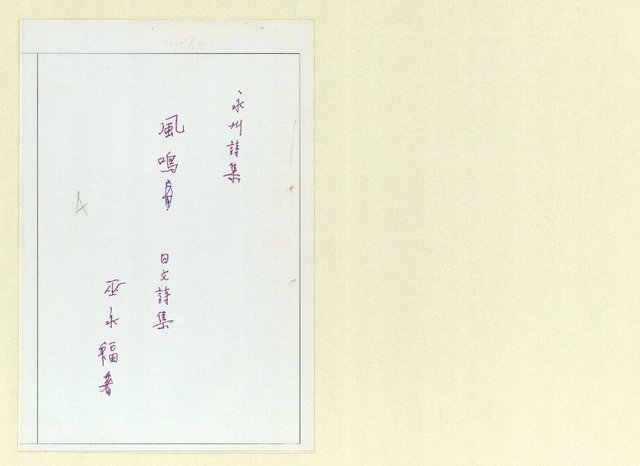 永州詩集
風鳴
日文詩集
巫永福著
4